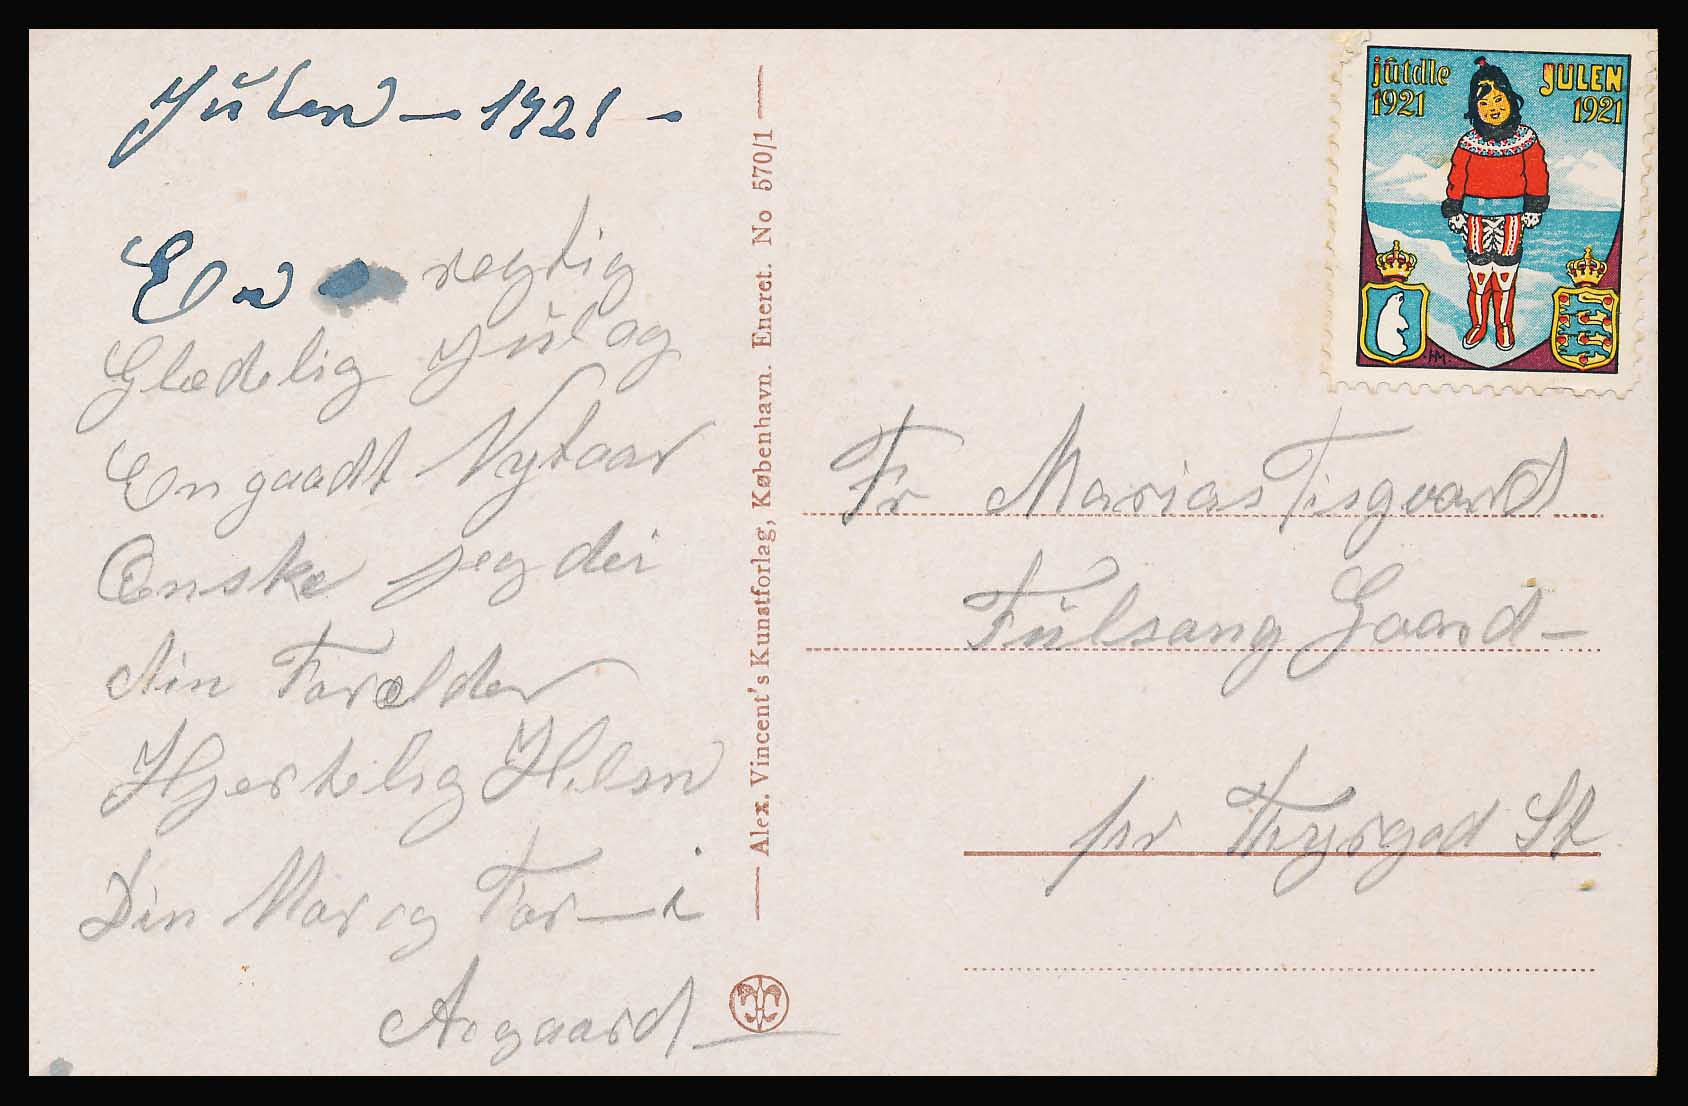 Julen - 1921 -
En regtig
Glædelig Jul og
En gaadt Nytaar
Ønske jeg dei
din Forælder
Hjertelig Hilsn
Din Mor og Far - i
Aegaard
Alex. Vincent's Kunstforlag, København. Eneret. No 570/1
jûtdle
1921
JULEN
1921
HM.
Fr Marias Tisgaard
Fulsang Gaard -
pr Thyrgod St